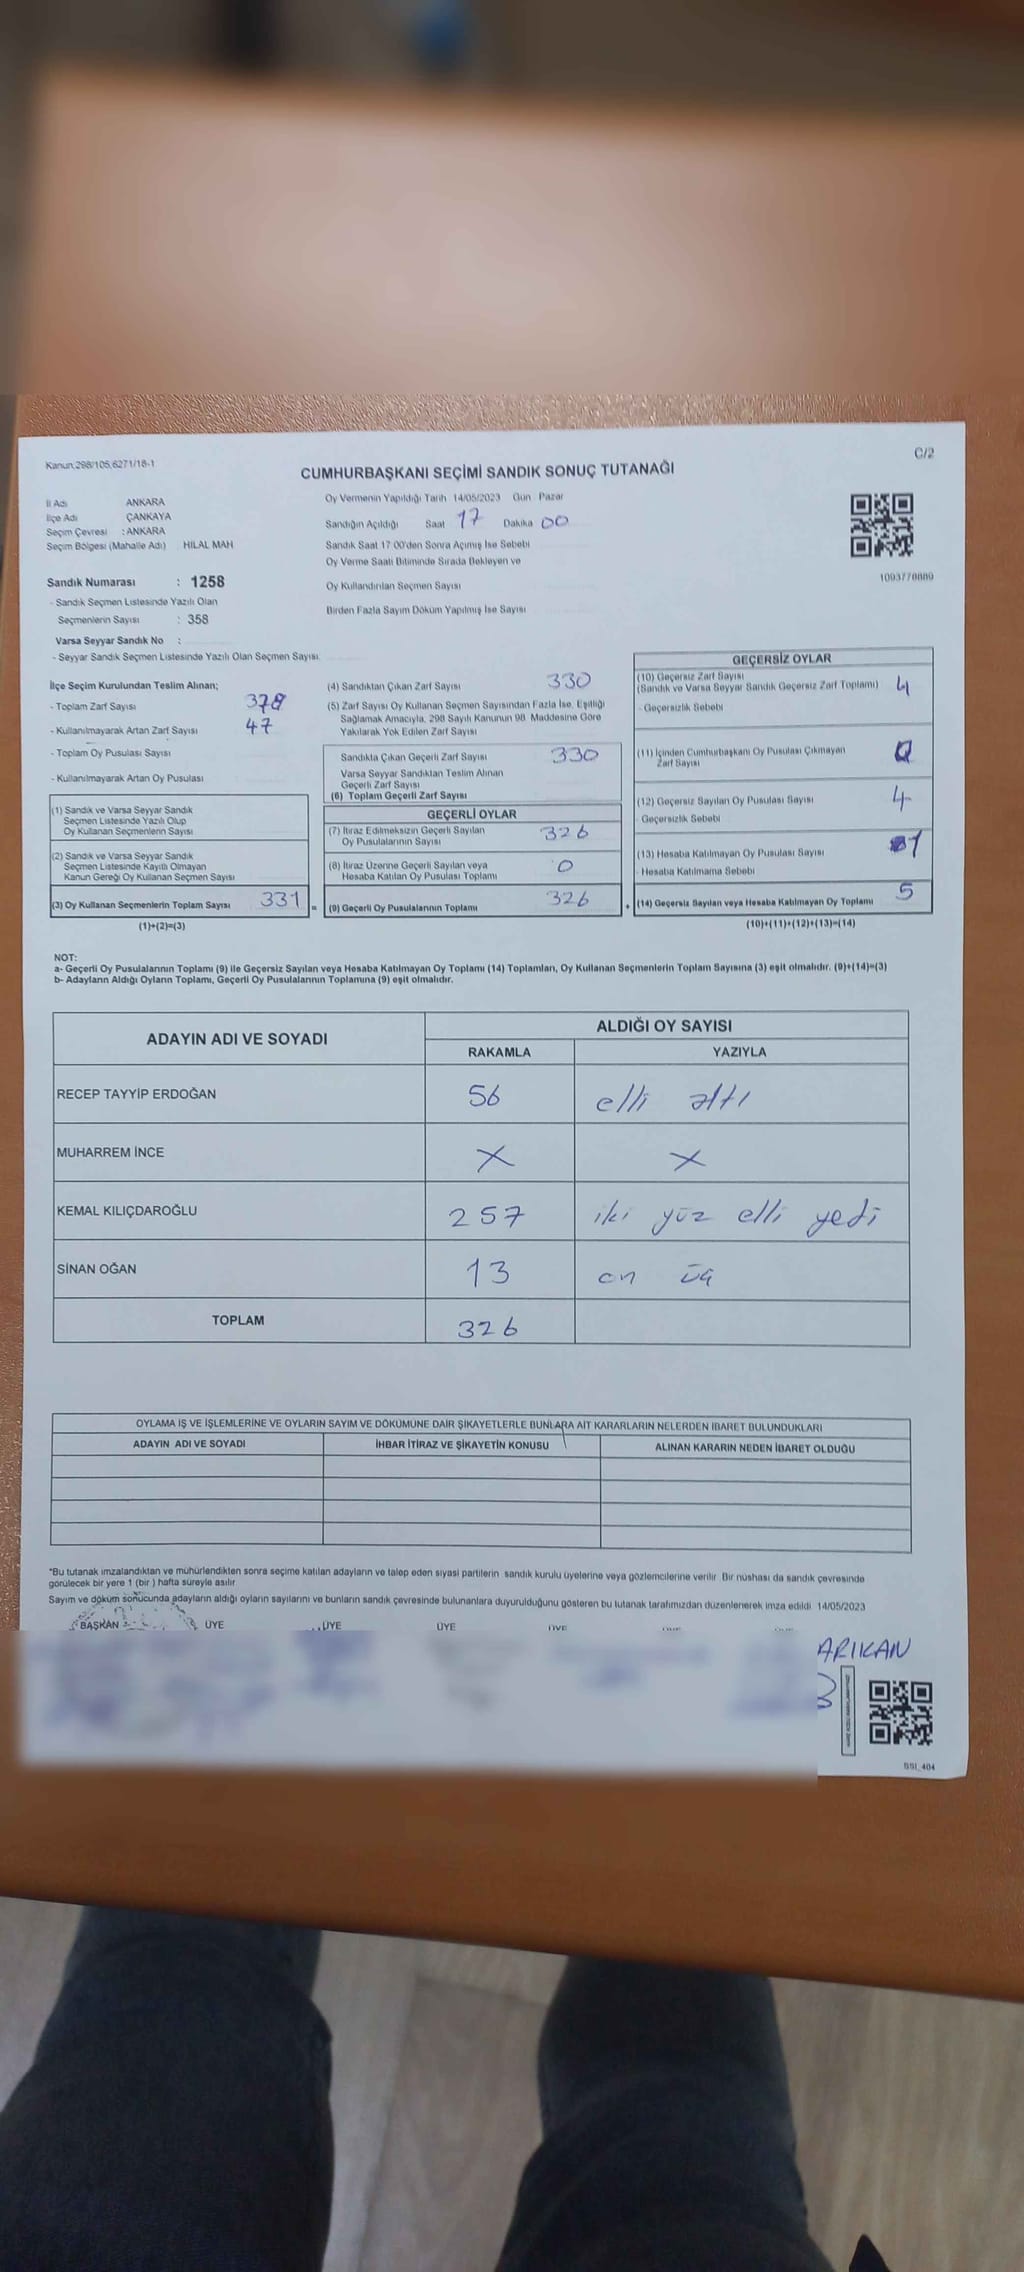 Kanun:298/105,6271/18-1
C/2
CUMHURBAŞKANI SEÇİMİ SANDIK SONUÇ TUTANAĞI
İl Adı ANKARA
İlçe Adı ÇANKAYA
Seçim Çevresi : ANKARA
Seçim Bölgesi (Mahalle Adı) HİLAL MAH
Oy Vermenin Yapıldığı Tarih 14/05/2023 Gün Pazar
Sandığın Açıldığı Saat 17 Dakika 00
Sandık Saat 17:00'den Sonra Açımış İse Sebebi
Oy Verme Saati Bitiminde Sırada Bekleyen ve
Oy Kullandırılan Seçmen Sayısı
Birden Fazla Sayım Döküm Yapılmış İse Sayısı
1093770889
Sandık Numarası : 1258
- Sandık Seçmen Listesinde Yazılı Olan
Seçmenlerin Sayısı : 358
Varsa Seyyar Sandık No :
- Seyyar Sandık Seçmen Listesinde Yazılı Olan Seçmen Sayısı:
İlçe Seçim Kurulundan Teslim Alınan;
- Toplam Zarf Sayısı 378
- Kullanılmayarak Artan Zarf Sayısı 47
- Toplam Oy Pusulası Sayısı
- Kullanılmayarak Artan Oy Pusulası
(1) Sandık ve Varsa Seyyar Sandık
Seçmen Listesinde Yazılı Olup
Oy Kullanan Seçmenlerin Sayısı
(2) Sandık ve Varsa Seyyar Sandık
Seçmen Listesinde Kayıtlı Olmayan
Kanun Gereği Oy Kullanan Seçmen Sayısı
(3) Oy Kullanan Seçmenlerin Toplam Sayısı 331 =
(1)+(2)=(3)
(4) Sandıktan Çıkan Zarf Sayısı 330
(5) Zarf Sayısı Oy Kullanan Seçmen Sayısından Fazla İse, Eşitliği
Sağlamak Amacıyla, 298 Sayılı Kanunun 98. Maddesine Göre
Yakılarak Yok Edilen Zarf Sayısı
Sandıkta Çıkan Geçerli Zarf Sayısı 330
Varsa Seyyar Sandıktan Teslim Alınan
Geçerli Zarf Sayısı
(6) Toplam Geçerli Zarf Sayısı
GEÇERLİ OYLAR
(7) İtiraz Edilmeksizin Geçerli Sayılan 326
Oy Pusulalarının Sayısı
(8) İtiraz Üzerine Geçerli Sayılan veya 0
Hesaba Katılan Oy Pusulası Toplamı
(9) Geçerli Oy Pusulalarının Toplamı 326 +
GEÇERSİZ OYLAR
(10) Geçersiz Zarf Sayısı
(Sandık ve Varsa Seyyar Sandık Geçersiz Zarf Toplamı) 4
- Geçersizlik Sebebi
(11) İçinden Cumhurbaşkanı Oy Pusulası Çıkmayan
Zarf Sayısı
(12) Geçersiz Sayılan Oy Pusulası Sayısı 4
- Geçersizlik Sebebi
(13) Hesaba Katılmayan Oy Pusulası Sayısı 1
- Hesaba Katılmama Sebebi
(14) Geçersiz Sayılan veya Hesaba Katılmayan Oy Toplamı 5
(10)+(11)+(12)+(13)=(14)
NOT:
a- Geçerli Oy Pusulalarının Toplamı (9) ile Geçersiz Sayılan veya Hesaba Katılmayan Oy Toplamı (14) Toplamları, Oy Kullanan Seçmenlerin Toplam Sayısına (3) eşit olmalıdır. (9)+(14)=(3)
b- Adayların Aldığı Oyların Toplamı, Geçerli Oy Pusulalarının Toplamına (9) eşit olmalıdır.
ADAYIN ADI VE SOYADI
ALDIĞI OY SAYISI
RAKAMLA YAZIYLA
RECEP TAYYİP ERDOĞAN 56 elli altı
MUHARREM İNCE X X
KEMAL KILIÇDAROĞLU 257 iki yüz elli yedi
SİNAN OĞAN 13 on üç
TOPLAM 326
OYLAMA İŞ VE İŞLEMLERİNE VE OYLARIN SAYIM VE DÖKÜMÜNE DAİR ŞİKAYETLERLE BUNLARA AİT KARARLARIN NELERDEN İBARET BULUNDUKLARI
ADAYIN ADI VE SOYADI İHBAR İTİRAZ VE ŞİKAYETİN KONUSU ALINAN KARARIN NEDEN İBARET OLDUĞU
*Bu tutanak imzalandıktan ve mühürlendikten sonra seçime katılan adayların ve talep eden siyasi partilerin sandık kurulu üyelerine veya gözlemcilerine verilir. Bir nüshası da sandık çevresinde
görülecek bir yere 1 (bir ) hafta süreyle asılır
Sayım ve döküm sonucunda adayların aldığı oyların sayılarını ve bunların sandık çevresinde bulunanlara duyurulduğunu gösteren bu tutanak tarafımızdan düzenlenerek imza edildi 14/05/2023
BAŞKAN ÜYE ÜYE ÜYE
ARIKAN
SSI_404